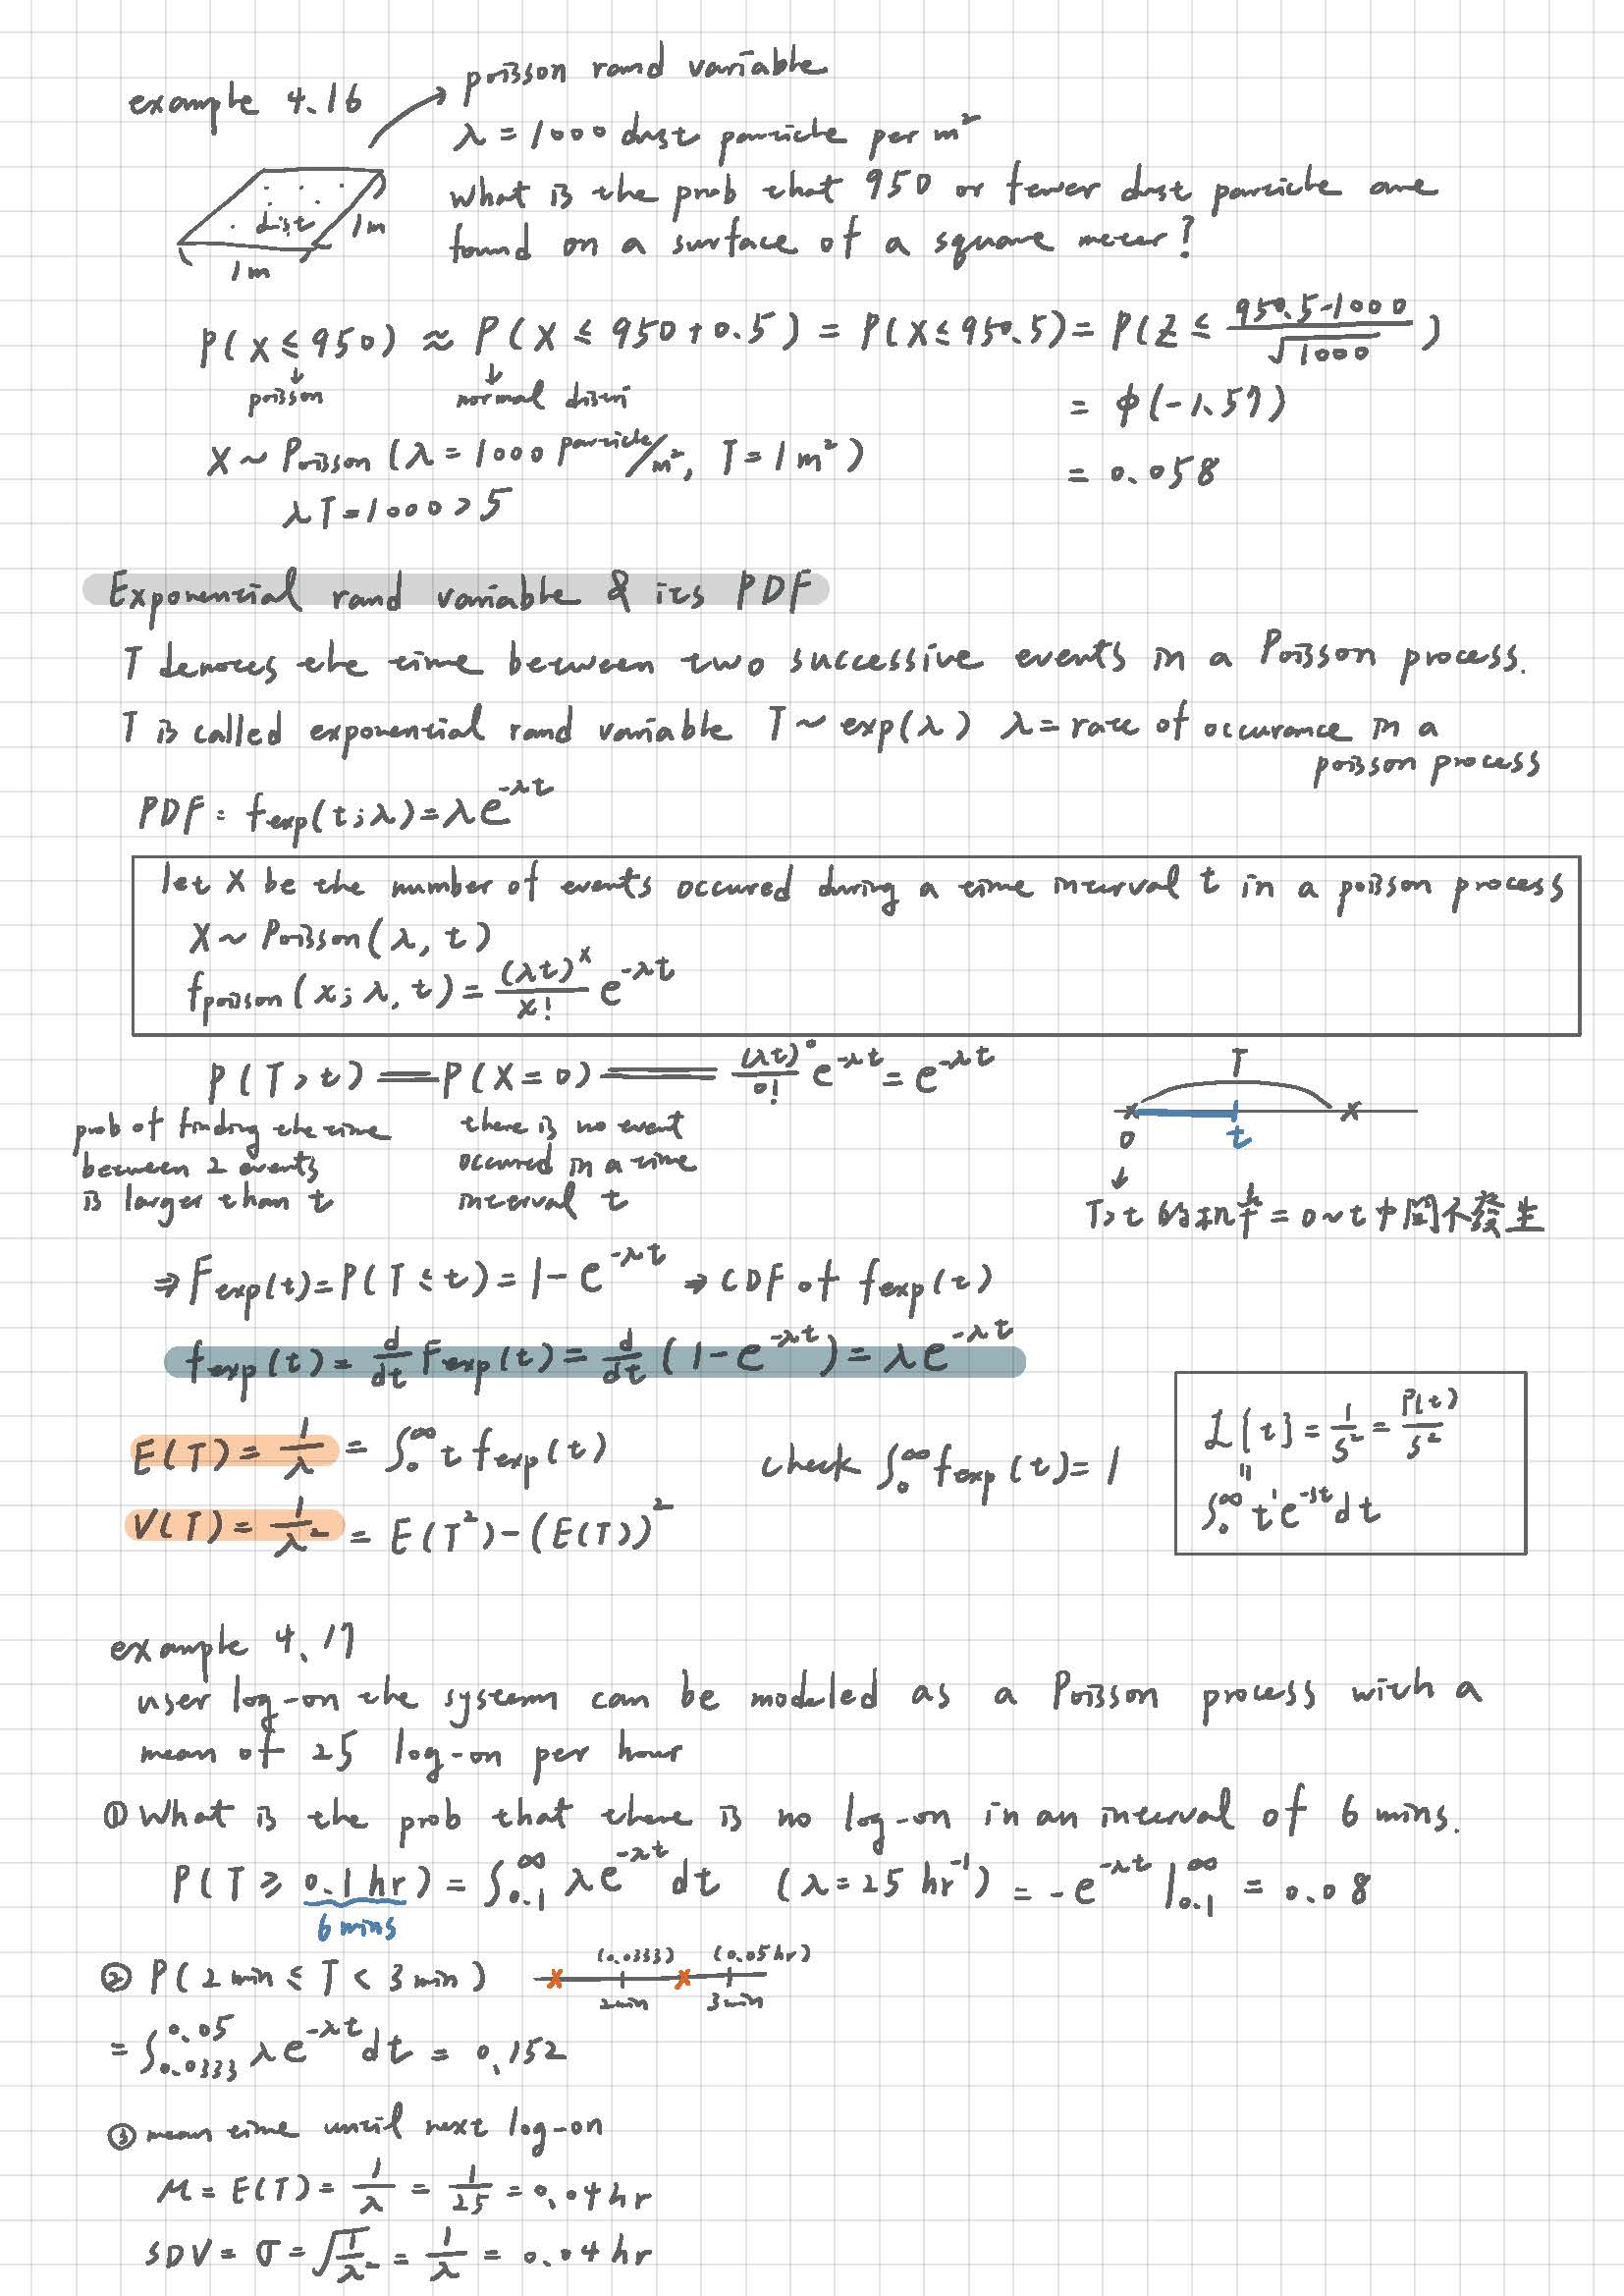 example 4.16
poisson rand variable
λ = 1000 dust particle per m²
What is the prob that 950 or fewer dust particle are
found on a surface of a square meter?
dust
1m
1m
P(X ≤ 950) ≈ P(X ≤ 950+0.5) = P(X ≤ 950.5) = P(Z ≤ (950.5-1000)/√1000)
poisson
normal distri
= φ(-1.57)
X ~ Poisson (λ = 1000 particle/m², T = 1m²)
= 0.058
λT = 1000 > 5
Exponential rand variable & its PDF
T denotes the time between two successive events in a Poisson process.
T is called exponential rand variable T ~ exp(λ) λ = rate of occurance in a
poisson process
PDF: f_exp(t;λ) = λe^{-λt}
let X be the number of events occured during a time interval t in a poisson process
X ~ Poisson(λ, t)
f_poisson(x; λ, t) = (λt)^x / x! e^{-λt}
P(T>t) = P(X=0) = (λt)^0 / 0! e^{-λt} = e^{-λt}
prob of finding the time
between 2 events
is larger than t
there is no event
occured in a time
interval t
T
0
t
T>t 的机率 = 0~t 中間不發生
⇒ F_exp(t) = P(T ≤ t) = 1 - e^{-λt} ⇒ CDF of f_exp(t)
f_exp(t) = d/dt F_exp(t) = d/dt (1 - e^{-λt}) = λe^{-λt}
E(T) = 1/λ = ∫₀^∞ t f_exp(t)
check ∫₀^∞ f_exp(t) = 1
V(T) = 1/λ² = E(T²) - (E(T))²
ℒ[t] = 1/s² = Γ(t)/s²
"
∫₀^∞ t¹e^{-st}dt
example 4.17
user log-on the system can be modeled as a Poisson process with a
mean of 25 log-on per hour
① What is the prob that there is no log-on in an interval of 6 mins.
P(T ≥ 0.1 hr) = ∫_{0.1}^∞ λe^{-λt} dt (λ = 25 hr⁻¹) = -e^{-λt} |_{0.1}^∞ = 0.08
6 mins
② P(2 min ≤ T < 3 min)
(0.0333) (0.05hr)
2min 3min
= ∫_{0.0333}^{0.05} λe^{-λt}dt = 0.152
③ mean time until next log-on
μ = E(T) = 1/λ = 1/25 = 0.04 hr
SDV = σ = √(1/λ²) = 1/λ = 0.04 hr